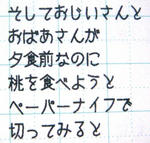 そしておじいさんと
おばあさんが
夕食前なのに
桃を食べようと
ペーパーナイフで
切ってみると